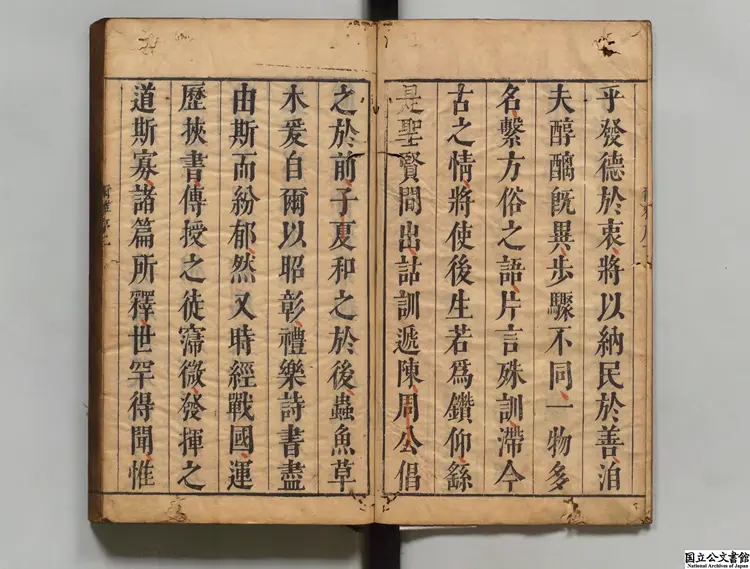 乎發德於衷將以納民於善洎
夫醇醨旣異步驟不同一物多
名繫方俗之語片言殊訓滯今
古之情將使後生若爲鑽仰繇
是聖賢間出詁訓遞陳周公倡
之於前子夏和之於後蟲魚草
木爰自爾以昭彰禮樂詩書盡
由斯而紛郁然又時經戰國運
歷挾書傳授之徒寖微發揮之
道斯寡諸篇所釋世罕得聞惟
国立公文書館
National Archives of Japan